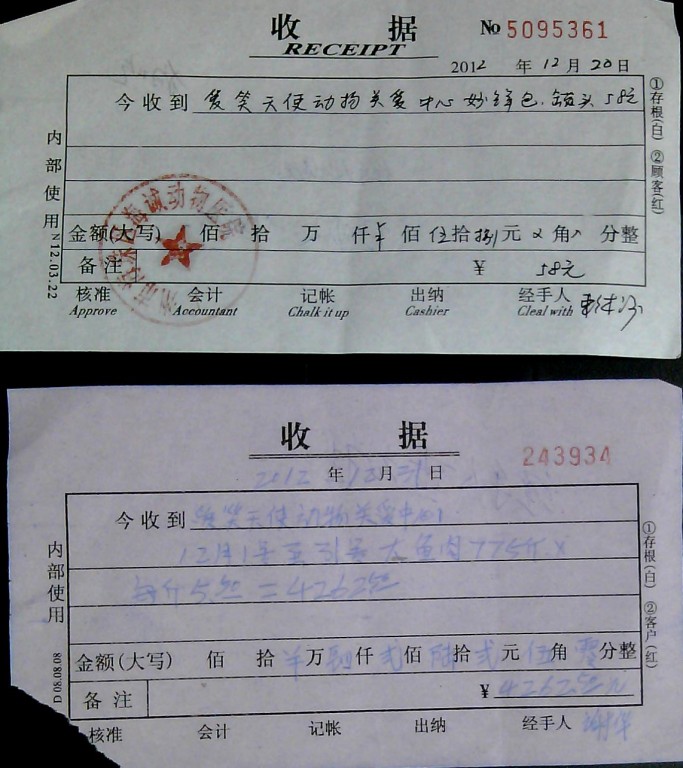 收 据
RECEIPT
No 5095361
2012 年 12 月 20 日
今收到 微笑天使动物关爱中心 妙鲜包、罐头 58元
金额(大写) 佰 拾 万 仟 ¥ 佰 伍拾 捌元 × 角 × 分整
备 注 ¥ 58元
核准 会计 记帐 出纳 经手人
Approve Accountant Chalk it up Cashier Cleal with
内部使用 N12.03.22
①存根(白) ②顾客(红)
海诚动物医院
收 据
243934
2012 年 12 月 31 日
今收到 微笑天使动物关爱中心
12月1号至31号 大鱼肉 775斤 ×
每斤5.5元 = 4262.5元
金额(大写) 佰 拾 ¥ 万 肆仟 贰佰 陆拾 贰元 伍角 零分整
备 注 ¥ 4262.5元
核准 会计 记帐 出纳 经手人
内部使用 80.80.80 D
①存根(白) ②客户(红)